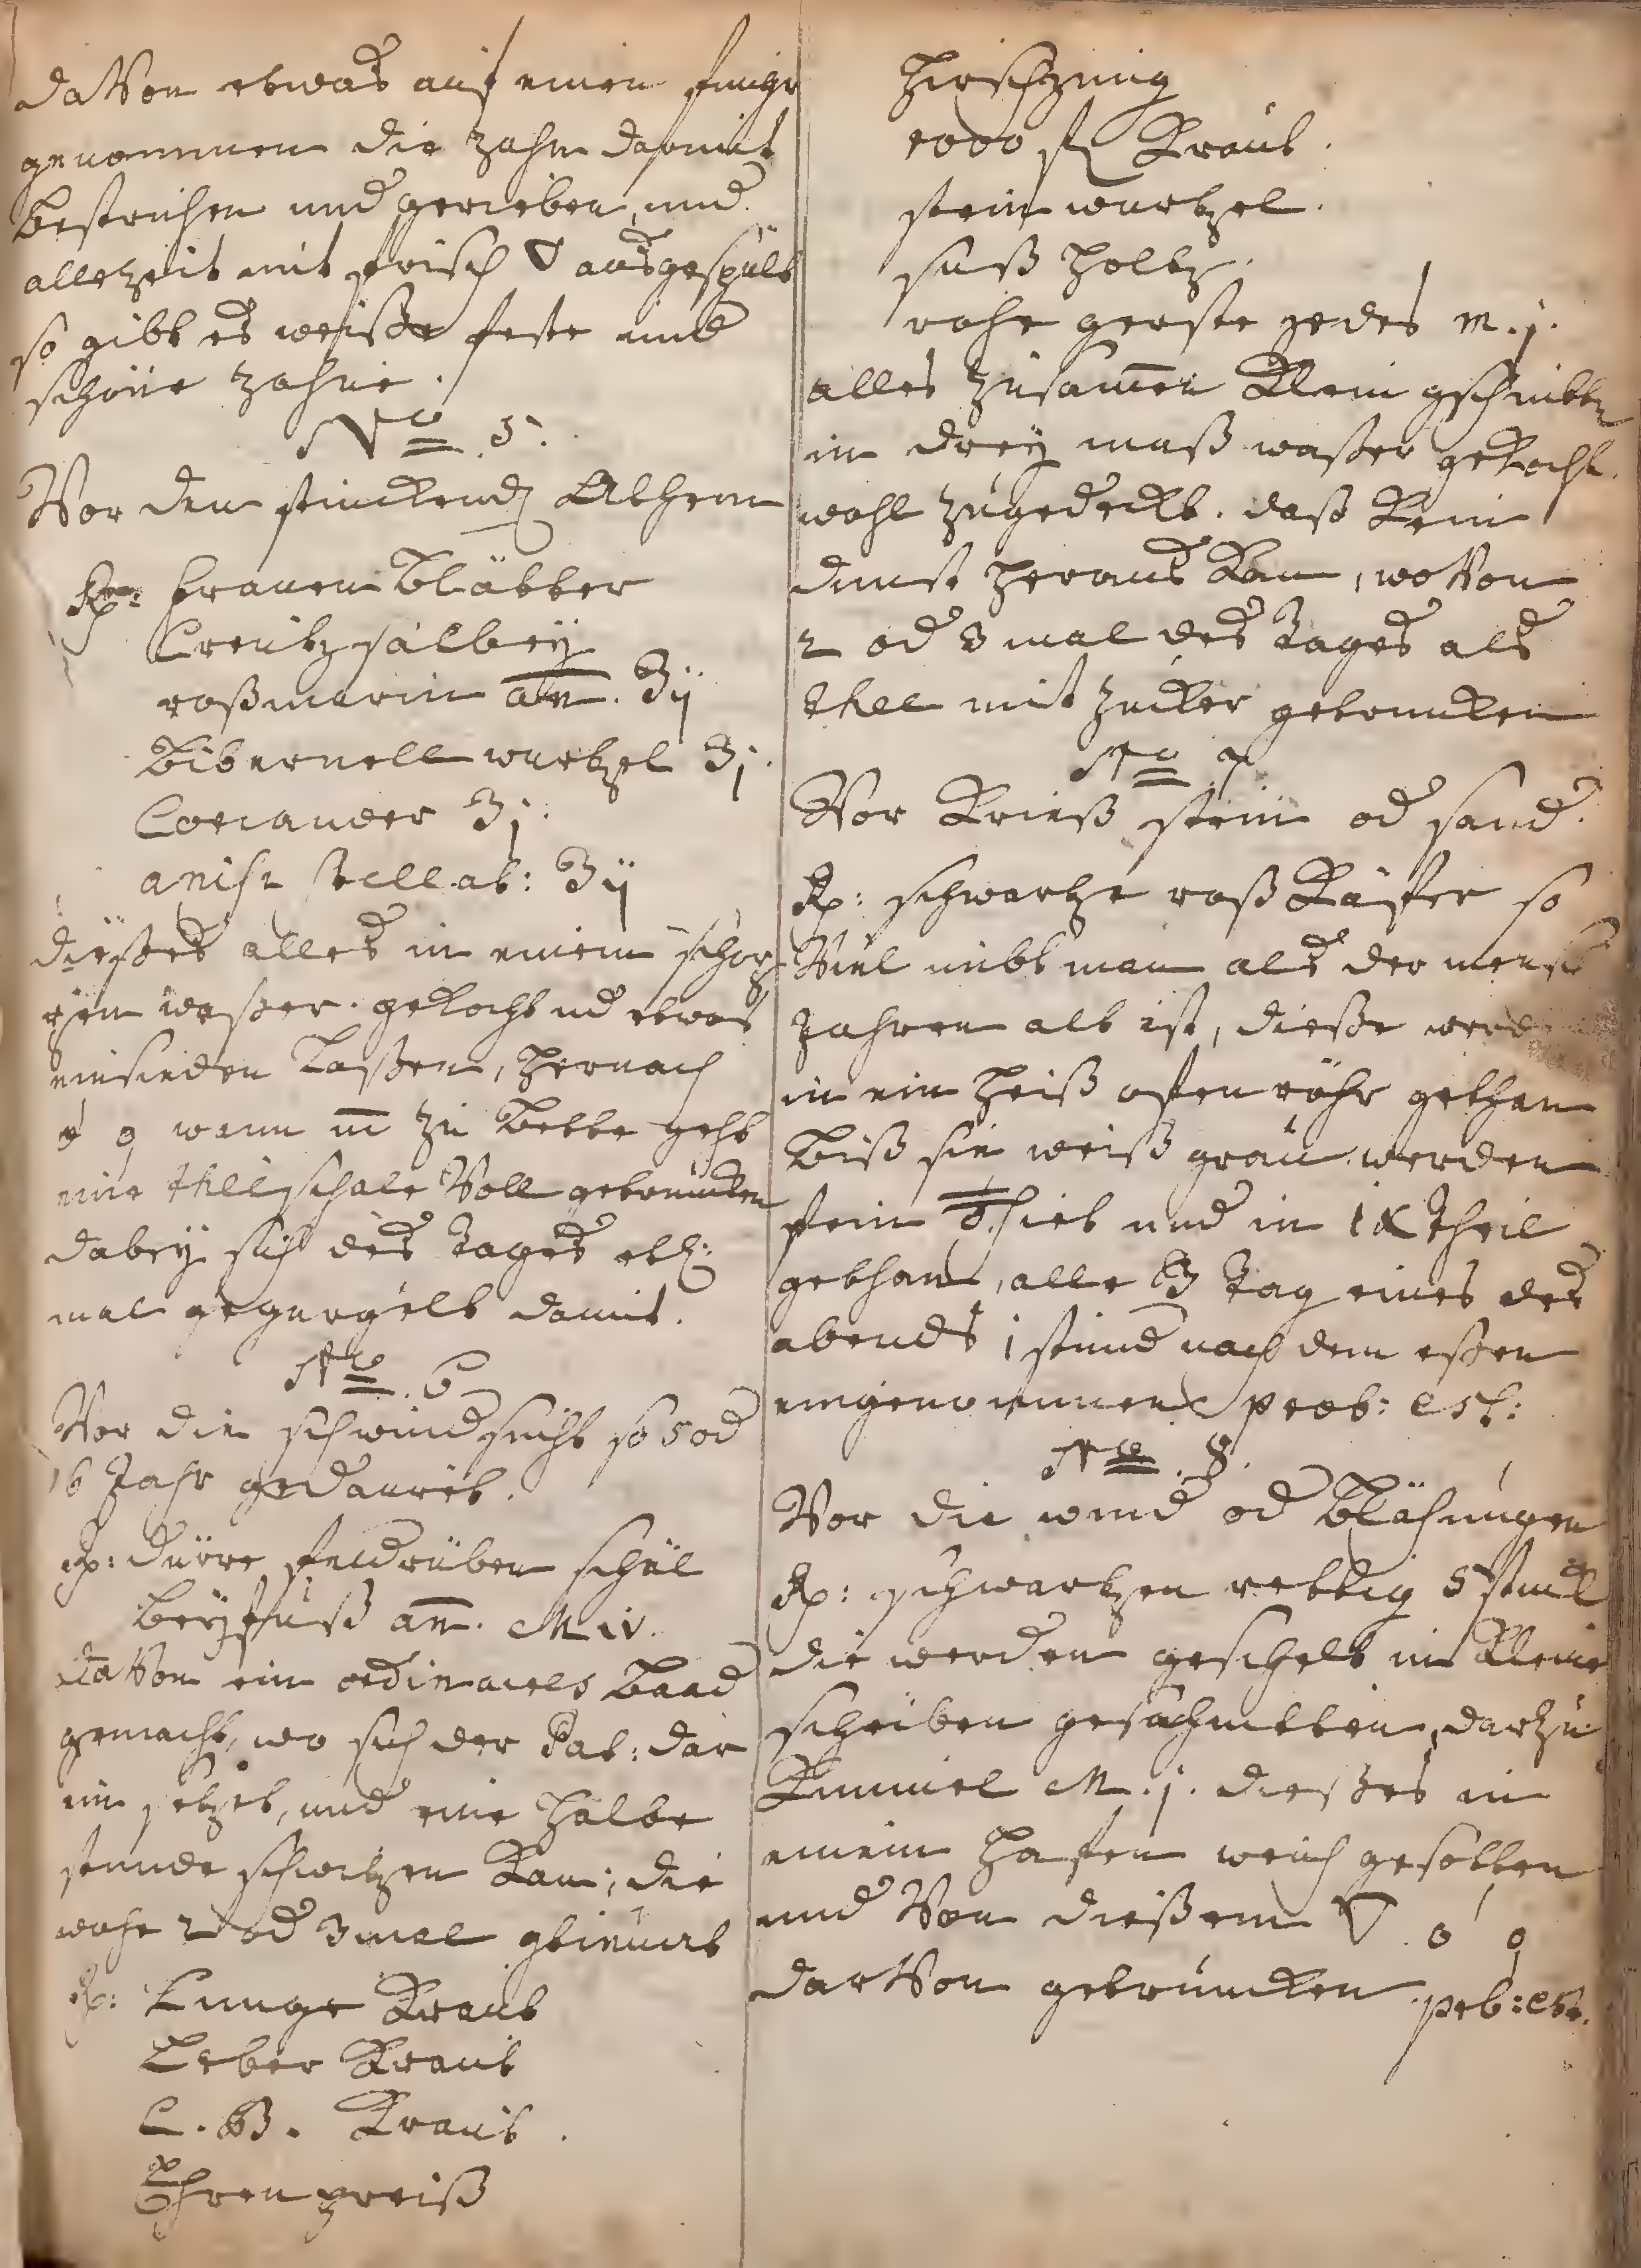 daVon etwas auf einen finger
genommen die Zahn darmit
bestrichen und gerieben, und
allezeit mit frisch 🜄 ausgespült
so gibt es weiße feste und
schöne Zahne.
No 5.
Vor den stinckend Athem
Rp: Frauen Blätter
Creutz salbey
roßmarin an. ʒij
Bibernell wurtzel ʒj.
Coriander ʒj.
anisi stellat: ʒij
dießes alles in einem
wasser gekocht ud etwas
einsieden Laßen, hernach
wenn m zu Bette geht
eine Theeschale Voll getruncken
dabey sich des Tages etl:
mal gegurgelt damit.
No. 6
Vor die schwindsucht so 5 od
16 Jahr gedauret.
Rp: dürre feldrüben schäl
Beyfuß an. M iv.
daVon ein ordinaires Baad
gemacht, wo sich der Pat: dar
ein setzet, und eine halbe
stunde schwitzen kan; die
woche 2 od 3 mal
Rp: Lunge Kraut
Leber Kraut
C. B. Kraut.
Ehrenpreiß
Hirschzung
1000 fl Kraut.
stein wurtzel.
süß Holtz.
rohe gerste jedes M. j.
alles zusamen klein gschnitten
in drey maß waßer gekocht.
wohl zugedeckt. daß kein
dunst heraus kan, woVon
2 od 3 mal des Tages als
Thee mit Zucker getruncken
No 7
Vor Grieß stein od sand.
Rp: schwartze roß Käffer so
Viel nimbt man als der mensch
Jahren alt ist, dieße werden
in ein heiß offen röhr gethan
Biß sie weiß grau werden
und in Theil
gethan, alle Tag eines des
abends 1 stund nach dem eßen
eingenommen prob: est:
No. 8.
Vor die wind od Blähungen
Rp: schwartzen rettig 5 stuck
die werden geschelt in kleine
scheiben geschnitten, darzu
Kümmel M. j. dießes in
einem Hafen weich gesotten
und Von dießem 🜄
darVon getruncken. prb: est.